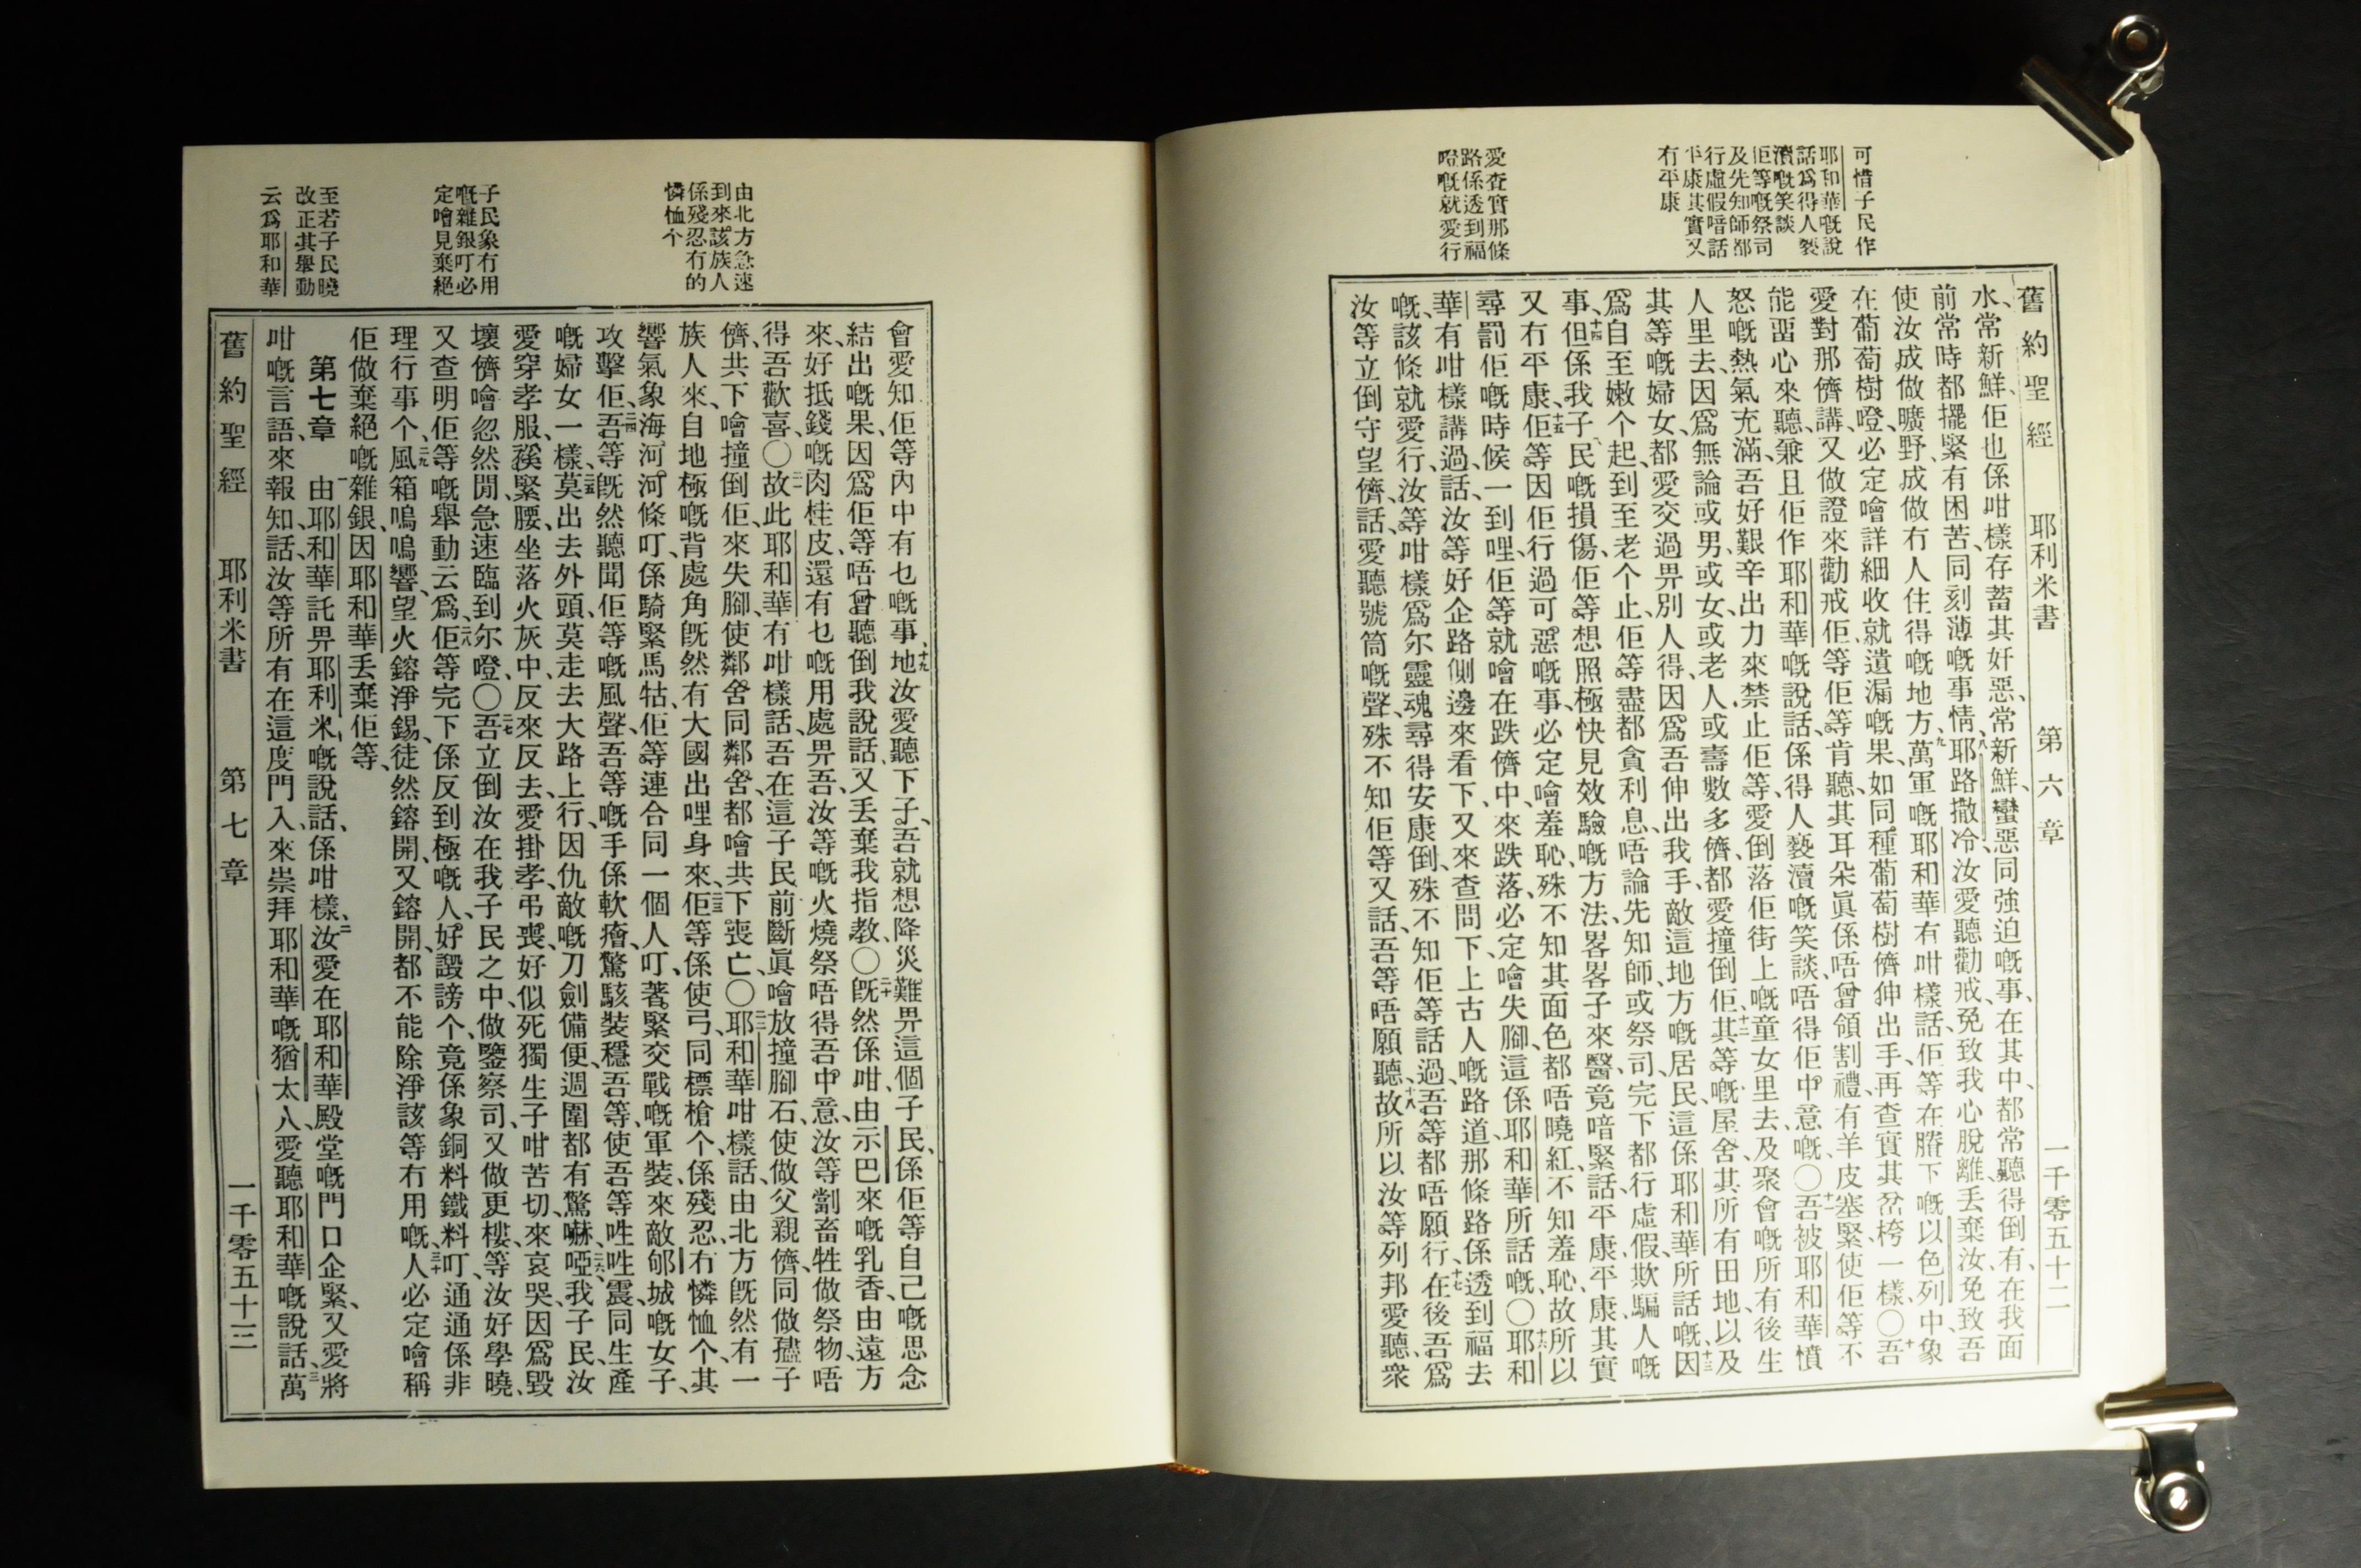 可惜子民作
耶和華嘅說
話爲得人褻
瀆嘅笑談
佢等嘅祭司
及先知師都
行虛假唶話
平康其實又
冇平康
愛查實那條
路係透到福
噔嘅就愛行
舊約聖經 耶利米書 第六章 一千零五十二
水、常新鮮、佢也係咁樣存蓄其奸惡、常新鮮、蠻惡同強迫嘅事、在其中、都常聽得倒、有、在我面
前常時都擺緊、有困苦、同刻薄嘅事情、八耶路撒冷、汝愛聽勸戒、免致我心脫離、丢棄汝、免致吾
使汝成做曠野、成做冇人住得嘅地方、九萬軍嘅耶和華有咁樣話、佢等在賸下嘅以色列中、象
在葡萄樹噔、必定噲詳細收就遺漏嘅果、如同種葡萄樹儕、伸出手、再查實其岔桍一樣、〇十吾
愛對那儕講、又做證來勸戒佢、等佢等肯聽、其耳朵眞係唔曾領割禮、有羊皮塞緊、使佢等不
能畱心來聽、兼且佢作耶和華嘅說話、係得人褻瀆嘅笑談、唔得佢中意嘅、〇十一吾被耶和華憤
怒嘅熱氣充滿、吾好艱辛出力來禁止佢等、愛倒落佢街上嘅童女里去、及聚會嘅所有後生
人里去、因爲無論或男、或女、或老人、或壽數多儕、都愛撞倒佢、十二其等嘅屋舍、其所有田地、以及
其等嘅婦女、都愛交過畀別人得、因爲吾伸出我手、敵這地方嘅居民、這係耶和華所話嘅、十三因
爲自至嫩个起、到至老个止、佢等盡都貪利息、唔論先知師、或祭司、完下都行虛假、欺騙人嘅
事、十四但係我子民嘅損傷、佢等想照極快見效驗嘅方法、畧畧子來醫、竟唶緊話、平康平康、其實
又冇平康、十五佢等因佢行過可惡嘅事、必定噲羞恥、殊不知其面色都唔曉紅、不知羞恥、故所以
尋罰佢嘅時候一到哩、佢等就噲在跌儕中、來跌落、必定噲失腳、這係耶和華所話嘅、〇十六耶和
華有咁樣講過、話、汝等好企路側邊、來看下、又來查問下、上古人嘅路道、那條路係透到福去
嘅、該條就愛行、汝等咁樣爲尔靈魂尋得安康倒、殊不知佢等話過、吾等都唔願行、十七在後吾爲
汝等立倒守望儕、話、愛聽號筒嘅聲、殊不知佢等又話、吾等唔願聽、十八故所以汝等列邦愛聽、衆
由北方急速
到來該族人
係殘忍冇的
憐恤个
子民象冇用
嘅雜銀叮必
定噲見棄絕
至若子民曉
改正其舉動
云爲耶和華
會愛知佢等內中有乜嘅事、十九地汝愛聽下子、吾就想降災難畀這個子民、係佢等自己嘅思念
結出嘅果、因爲佢等唔曾聽倒我說話、又丢棄我指教、〇二十旣然係咁、由示巴來嘅乳香、由遠方
來、好抵錢嘅肉桂皮、還有乜嘅用處畀吾、汝等嘅火燒祭唔得吾中意、汝等劏畜牲做祭物、唔
得吾歡喜、〇二一故此耶和華有咁樣話、吾在這子民前斷眞噲放撞腳石、使做父親儕、同做孻子
儕、共下噲撞倒佢、來失腳、使鄰舍同鄰舍、都噲共下喪亡、〇二二耶和華咁樣話、由北方旣然有一
族人來、自地極嘅背處角旣然有大國出哩身來、二三佢等係使弓、同標槍个、係殘忍、冇憐恤个、其
響氣象海河、河條叮、係騎緊馬牯、佢等連合同一個人叮、著緊交戰嘅軍裝、來敵郇城嘅女子、
攻擊佢、二四吾等旣然聽聞佢等嘅風聲、吾等嘅手係軟瘠、驚駭裝穩吾等、使吾等㽒㽒震、同生產
嘅婦女一樣、二五莫出去外頭、莫走去大路上行、因仇敵嘅刀劍備便、週圍都有驚嚇、二六啞我子民、汝
愛穿孝服、䙝緊腰、坐落火灰中、反來反去、愛掛孝、弔喪、好似死獨生子咁苦切、來哀哭、因爲毀
壞儕噲忽然閒、急速臨到尔噔、〇二七吾立倒汝在我子民之中、做鑒察司、又做更樓、等汝好學曉、
又查明佢等嘅舉動云爲、二八佢等完下係反到極嘅人、好譭謗个、竟係象銅料鐵料叮、通通係非
理行事个、二九風箱嗚嗚響、望火鎔淨錫、徒然鎔開、又鎔開、都不能除淨該等冇用嘅、三十人必定噲稱
佢做棄絕嘅雜銀、因耶和華丢棄佢等、
第七章 一由耶和華託畀耶利米嘅說話、係咁樣、二汝愛在耶和華殿堂嘅門口企緊、又愛將
咁嘅言語、來報知、話、汝等所有在這度門入、來崇拜耶和華嘅猶太人、愛聽耶和華嘅說話、三萬
舊約聖經 耶利米書 第七章 一千零五十三